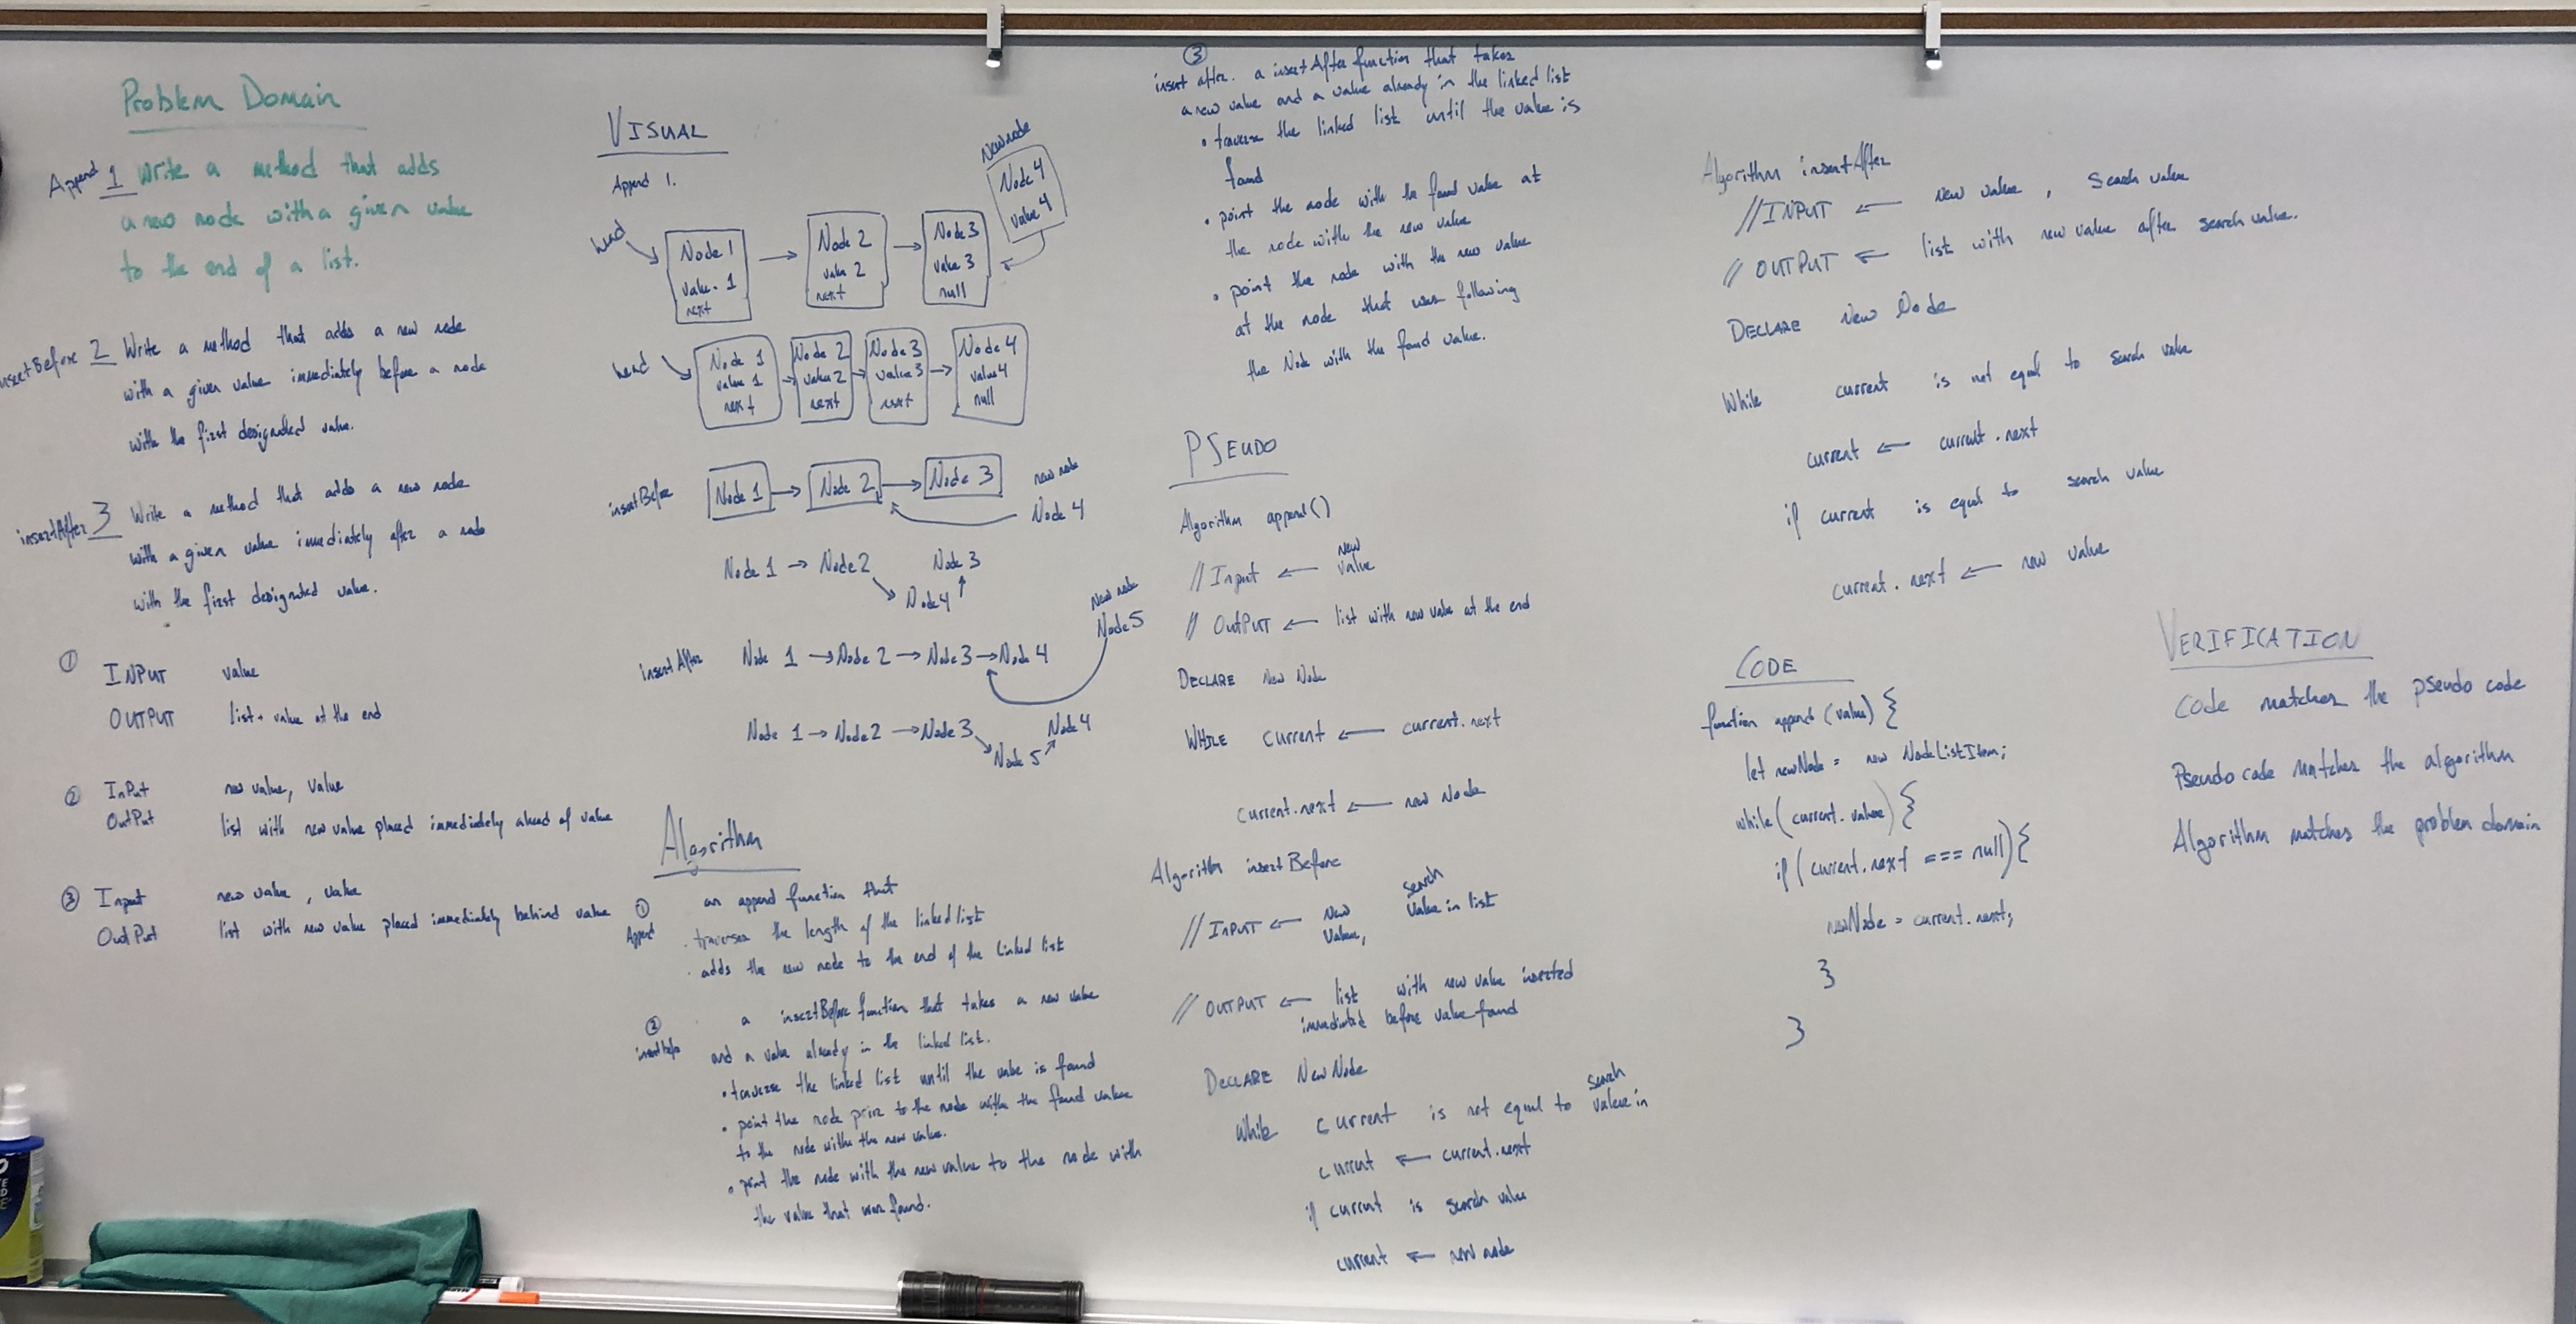 Problem Domain
Append 1 Write a method that adds
a new node with a given value
to the end of a list.
insertBefore 2 Write a method that adds a new node
with a given value immediately before a node
with the first designated value.
insertAfter 3 Write a method that adds a new node
with a given value immediately after a node
with the first designated value.
① INPUT value
OUTPUT list + value at the end
② InPut new value, Value
OutPut list with new value placed immediately ahead of value
③ Input new value, value
OutPut list with new value placed immediately behind value
VISUAL
Append 1.
New node
Node 4
value 4
head
Node 1
value. 1
next
Node 2
value 2
next
Node 3
value 3
null
head
Node 1
value 1
next
Node 2
value 2
next
Node 3
value 3
next
Node 4
value 4
null
insertBefore Node 1 → Node 2 → Node 3 new node
Node 4
Node 1 → Node 2 Node 3
Node 4
New node
Node 5
insertAfter Node 1 → Node 2 → Node 3 → Node 4
Node 1 → Node 2 → Node 3 Node 4
Node 5
Algorithm
① Append an append function that
· traverses the length of the linked list
· adds the new node to the end of the linked list
② a insertBefore function that takes a new value
and a value already in the linked list.
• traverse the linked list until the value is found
• point the node prior to the node with the found value
to the node with the new value.
• point the node with the new value to the node with
the value that was found.
③
insert after. a insertAfter function that takes
a new value and a value already in the linked list
• traverse the linked list until the value is
found
• point the node with the found value at
the node with the new value
• point the node with the new value
at the node that was following
the Node with the found value.
PSEUDO
Algorithm append()
// Input ← New Value
// OutPUT ← list with new value at the end
DECLARE New Node
WHILE current ← current.next
current.next ← new Node
Algorithm insertBefore
// INPUT ← New Value, Search Value in list
// OUTPUT ← list with new value inserted
immediated before value found
DECLARE New Node
While current is not equal to search value in
current ← current.next
if current is search value
current ← new node
Algorithm insertAfter
// INPUT ← new value, Search value
// OUTPUT ← list with new value after search value.
DECLARE New Node
While current is not equal to search value
current ← current.next
if current is equal to search value
current.next ← new value
CODE
function append (value) {
let newNode = new NodeListItem;
while (current.value) {
if (current.next === null) {
newNode = current.next;
}
}
VERIFICATION
Code matches the pseudo code
Pseudo code matches the algorithm
Algorithm matches the problem domain